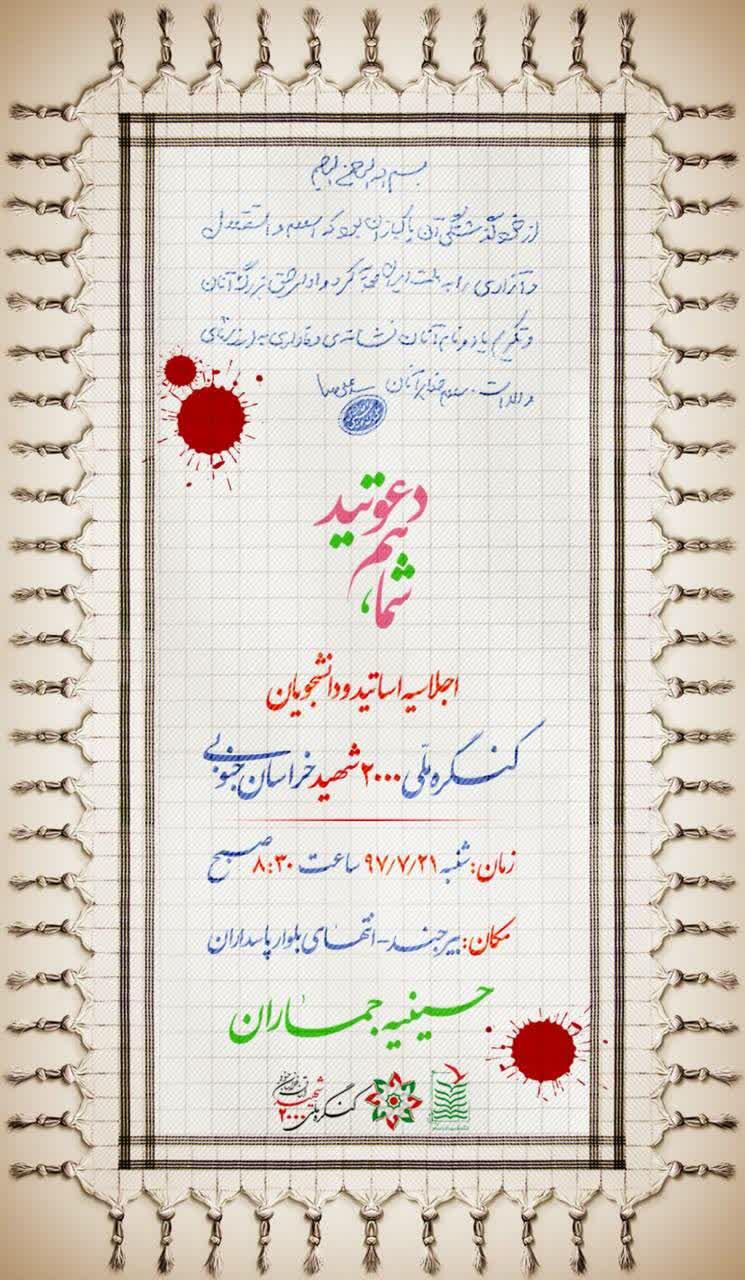 بسم الله الرحمن الرحیم
از خود گذشتگی آن پاکبازان بود که اسلام و استقلال
و آزادی را به ملت ایران هدیه کرد و ادای حق بزرگ آنان
و تکریم یاد و نام آنان نشانه‌ی وفاداری به ارزشهای
والاست. سلام خدا بر آنان
شما هم دعوتید
اجلاسیه اساتید و دانشجویان
کنگره ملّی ۲۰۰۰ شهید خراسان جنوبی
زمان: شنبه ۹۷/۷/۲۱ ساعت ۸:۳۰ صبح
مکان: بیرجند - انتهای بلوار پاسداران
حسینیه جماران
کنگره ملی ۲۰۰۰ شهید